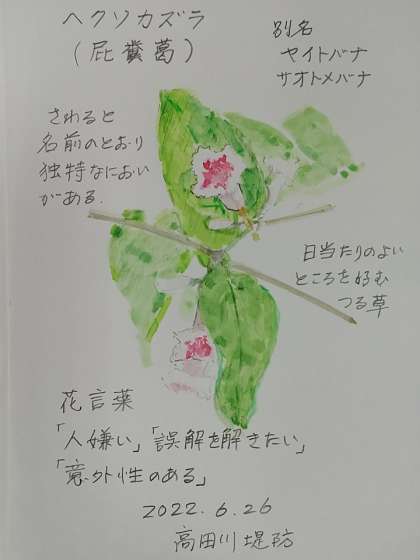 ヘクソカズラ
(屁糞葛)
別名
ヤイトバナ
サオトメバナ
さわると
名前のとおり
独特なにおい
がある.
日当たりのよい
ところを好む
つる草
花言葉
「人嫌い」「誤解を解きたい」
「意外性のある」
2022.6.26
高田川堤防